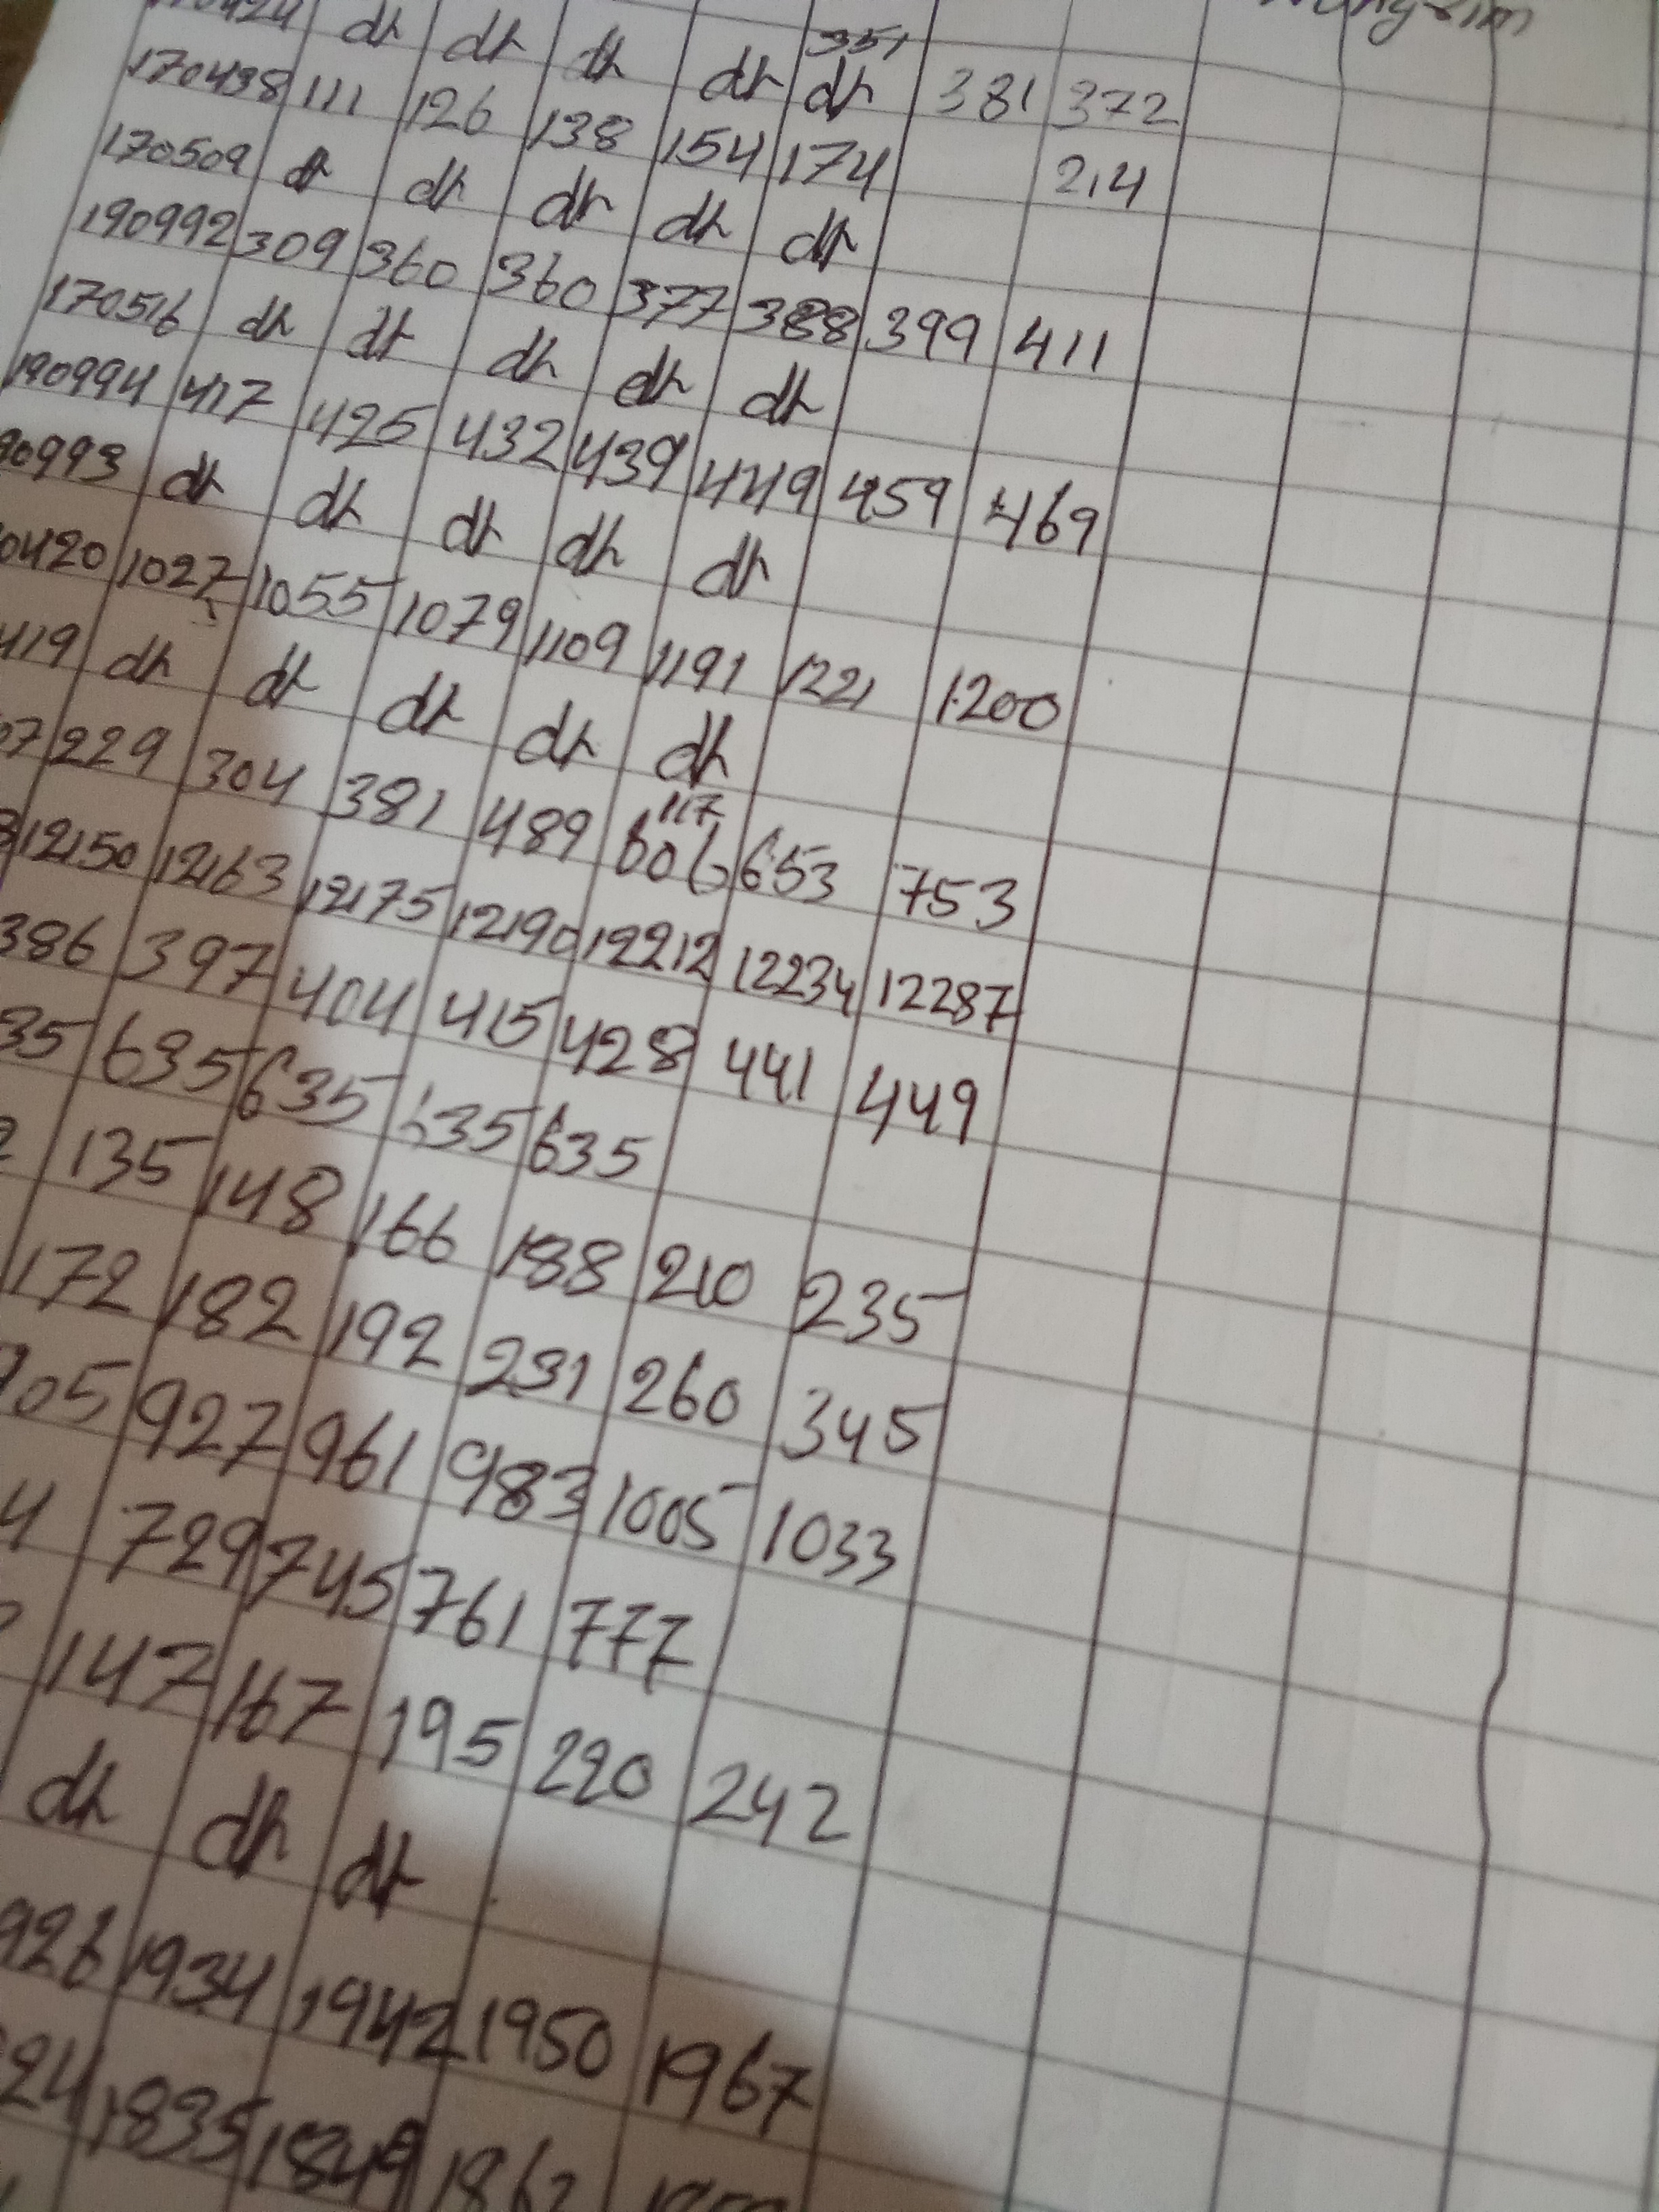 351
dr dr dr dr dr 381 372
170438 111 126 138 154 174 214
170509 dr dr dr dr dr
190992 309 360 360 377 388 399 411
170516 dr dr dr dr dr
190994 417 425 432 439 449 459 469
90993 dr dr dr dr dr
0420 1027 1055 1079 1109 1191 1221 1200
419 dr dr dr dr dr
117
07 229 304 381 489 606 653 753
12150 12163 12175 12190 12212 12234 12287
386 397 404 415 428 441 449
35 635 635 635 635
135 148 166 188 210 235
172 182 192 231 260 345
905 927 961 983 1005 1033
4 729 745 761 777
147 167 195 220 242
dr dr dr
926 1934 1942 1950 1967
24 1835 1849 1862